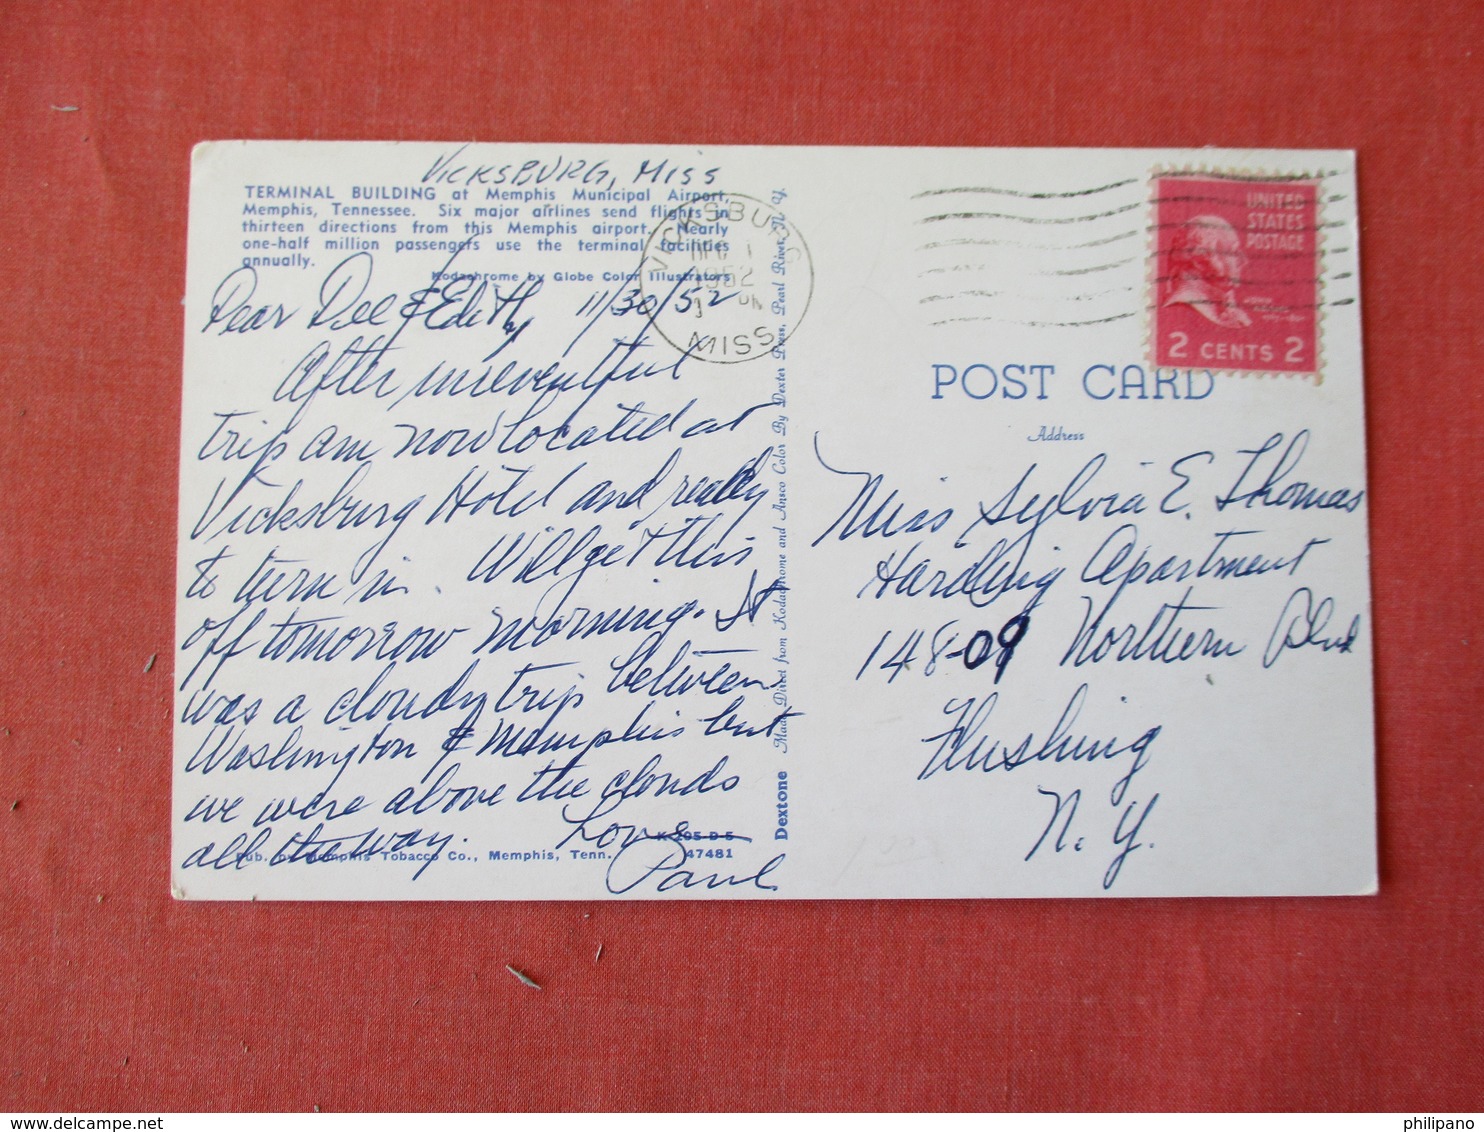 VICKSBURG, MISS
TERMINAL BUILDING at Memphis Municipal Airport,
Memphis, Tennessee. Six major airlines send flights in
thirteen directions from this Memphis airport. Nearly
one-half million passengers use the terminal facilities
annually.
Kodachrome by Globe Color Illustrators
Dear Dee & Edith, 11/30/52
After uneventful
trip am now located at
Vicksburg Hotel and ready
to turn in. Will get this
off tomorrow morning. It
was a cloudy trip between
Washington & Memphis but
we were above the clouds
all the way. Love
Paul
K-205-D-5
Pub. by Memphis Tobacco Co., Memphis, Tenn. 47481
Dextone Made Direct from Kodachrome and Ansco Color By Dexter Press, Pearl River, N. Y.
VICKSBURG
DEC 1
1952
PM
MISS
UNITED
STATES
POSTAGE
2 CENTS 2
POST CARD
Address
Miss Sylvia E. Thomas
Harding Apartment
148-09 Northern Blvd
Flushing
N. Y.
philipano